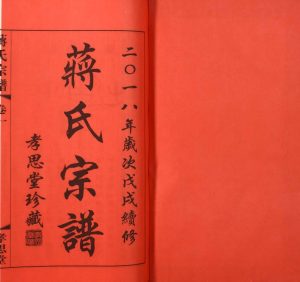 二〇一八年歲次戊戌續修
蔣氏宗譜
孝思堂珍藏
蔣氏宗譜 卷一
孝思堂